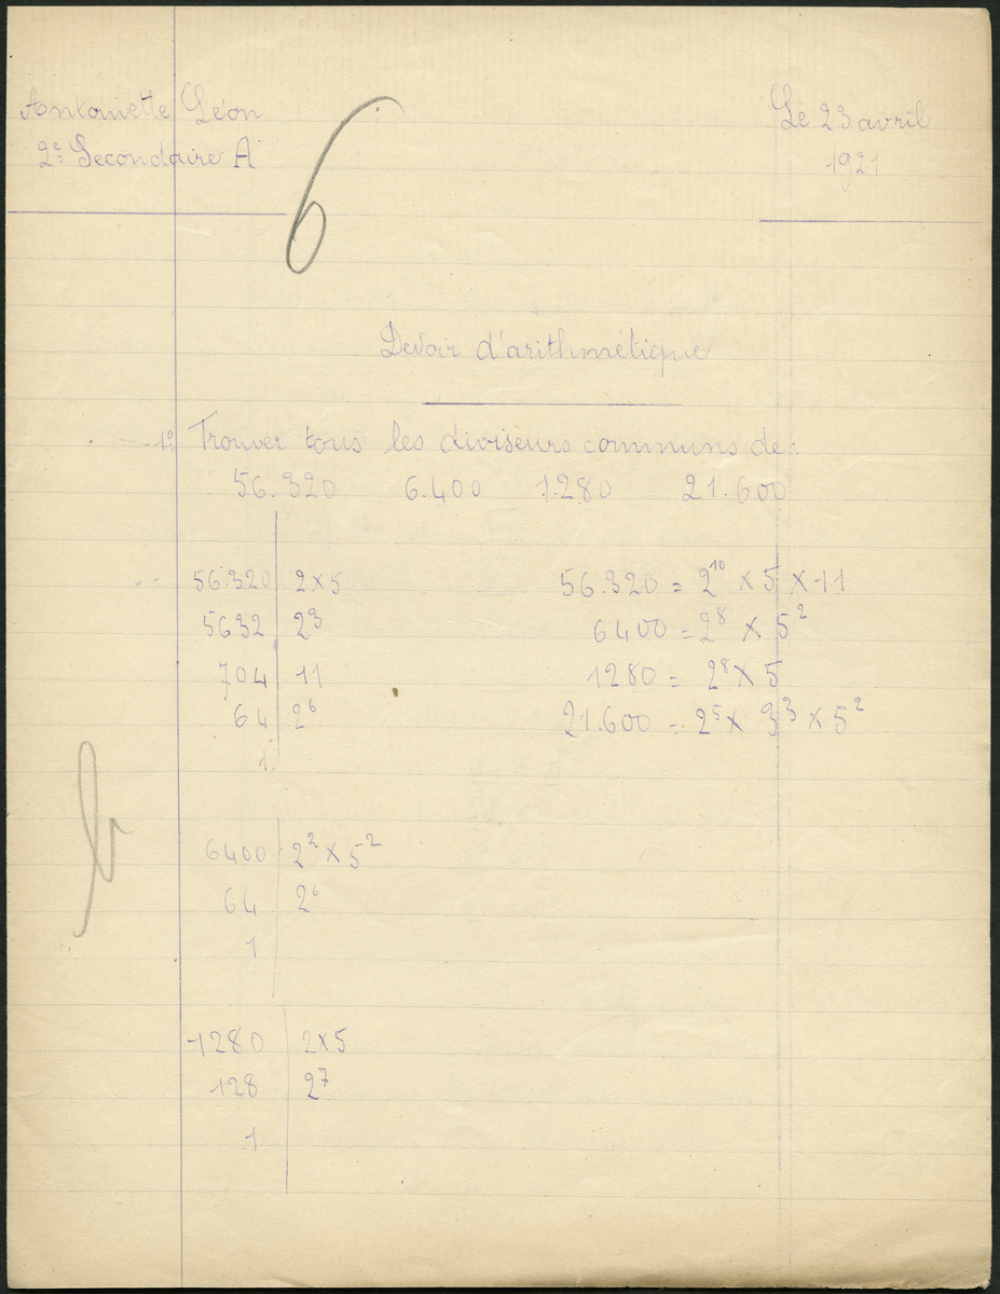 Antoinette Léon
2e Secondaire A
6
Le 23 avril
1921
Devoir d'arithmétique
1º Trouver tous les diviseurs communs de :
56.320 6.400 1.280 21.600
56.320 | 2 x 5
5632 | 2³
704 | 11
64 | 2⁶
1
56.320 = 2¹⁰ x 5 x 11
6400 = 2⁸ x 5²
1280 = 2⁸ x 5
21.600 = 2⁵ x 3³ x 5²
6400 | 2² x 5²
64 | 2⁶
1
1280 | 2 x 5
128 | 2⁷
1